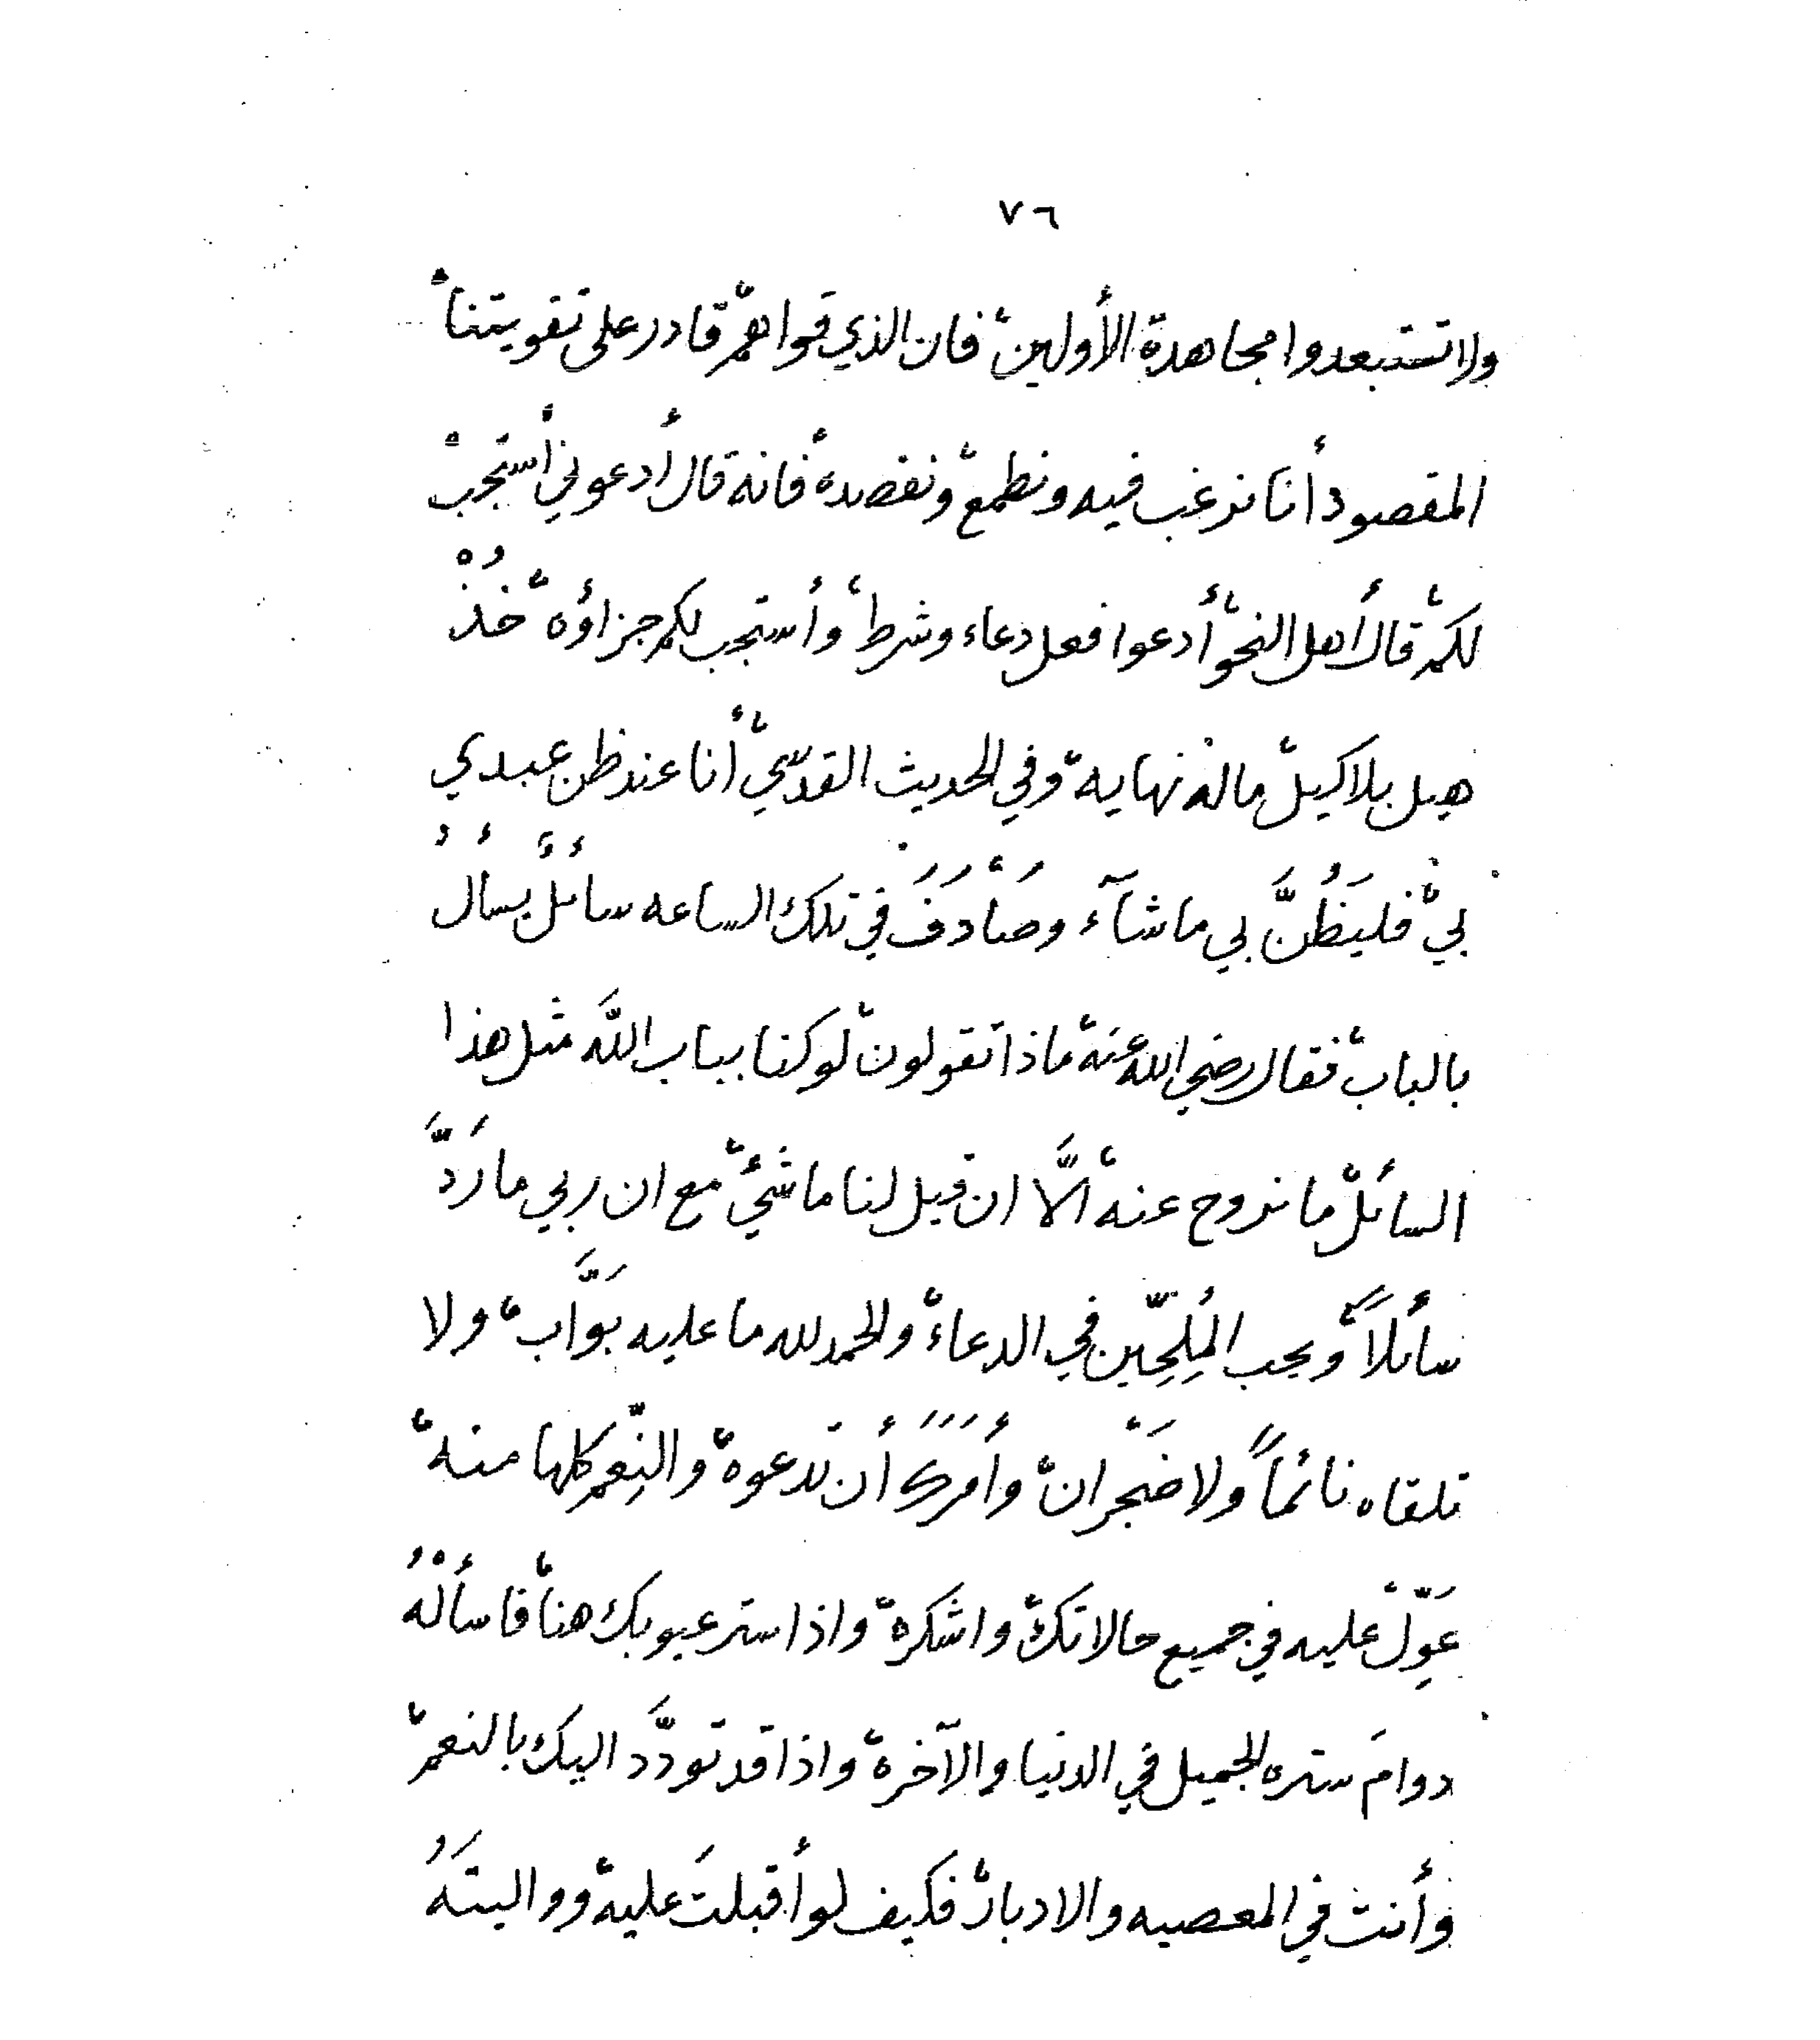 ٧٦
ولا تستبعدوا مجاهدة الأولين، فان الذي قواهم، قادر على تقويتنا،
المقصود أننا نرغب فيه ونطمع، ونقصده، فانه قال أدعوني أستجب،
لكم، قال أهل النحو، أدعوا فعل دعاء وشرط، وأستجب لكم جزاؤه، خُذْ
هيل بلا كيل، ماله نهايه، وفي الحديث القدسّي، أنا عند ظن عبدي
بي، فليَظُنَّ بي ما شآء وصَادَفَ في تلك الساعه سائلٌ يسألُ
بالباب، فقال رضي الله عنه، ماذا تقولون، لو كنا بباب اللَّه مثل هذا
السائل، ما نروح عنه، الَّا ان قيل لنا ما شيءْ، مع ان ربي ما رَدَّ
سائلاً، ويحب المُلِحِّين في الدعاء، والحمدلله ما عليه بَوَّاب، ولا
تلقاه نائماً ولا ضَجْران، وأَمَرَكَ أن تدعوه، والنِّعم كلها منه،
عَوِّل، عليه في جميع حالاتك، واشكره، واذا ستر عيوبك هنا، فاسألْهُ
دوامَ ستره الجميل في الدنيا والآخره، واذا قد تودَّد اليك بالنعم،
وأنت في المعصيه والادبار، فكيف لو أقبلتَ عليه، وواليتَهُ